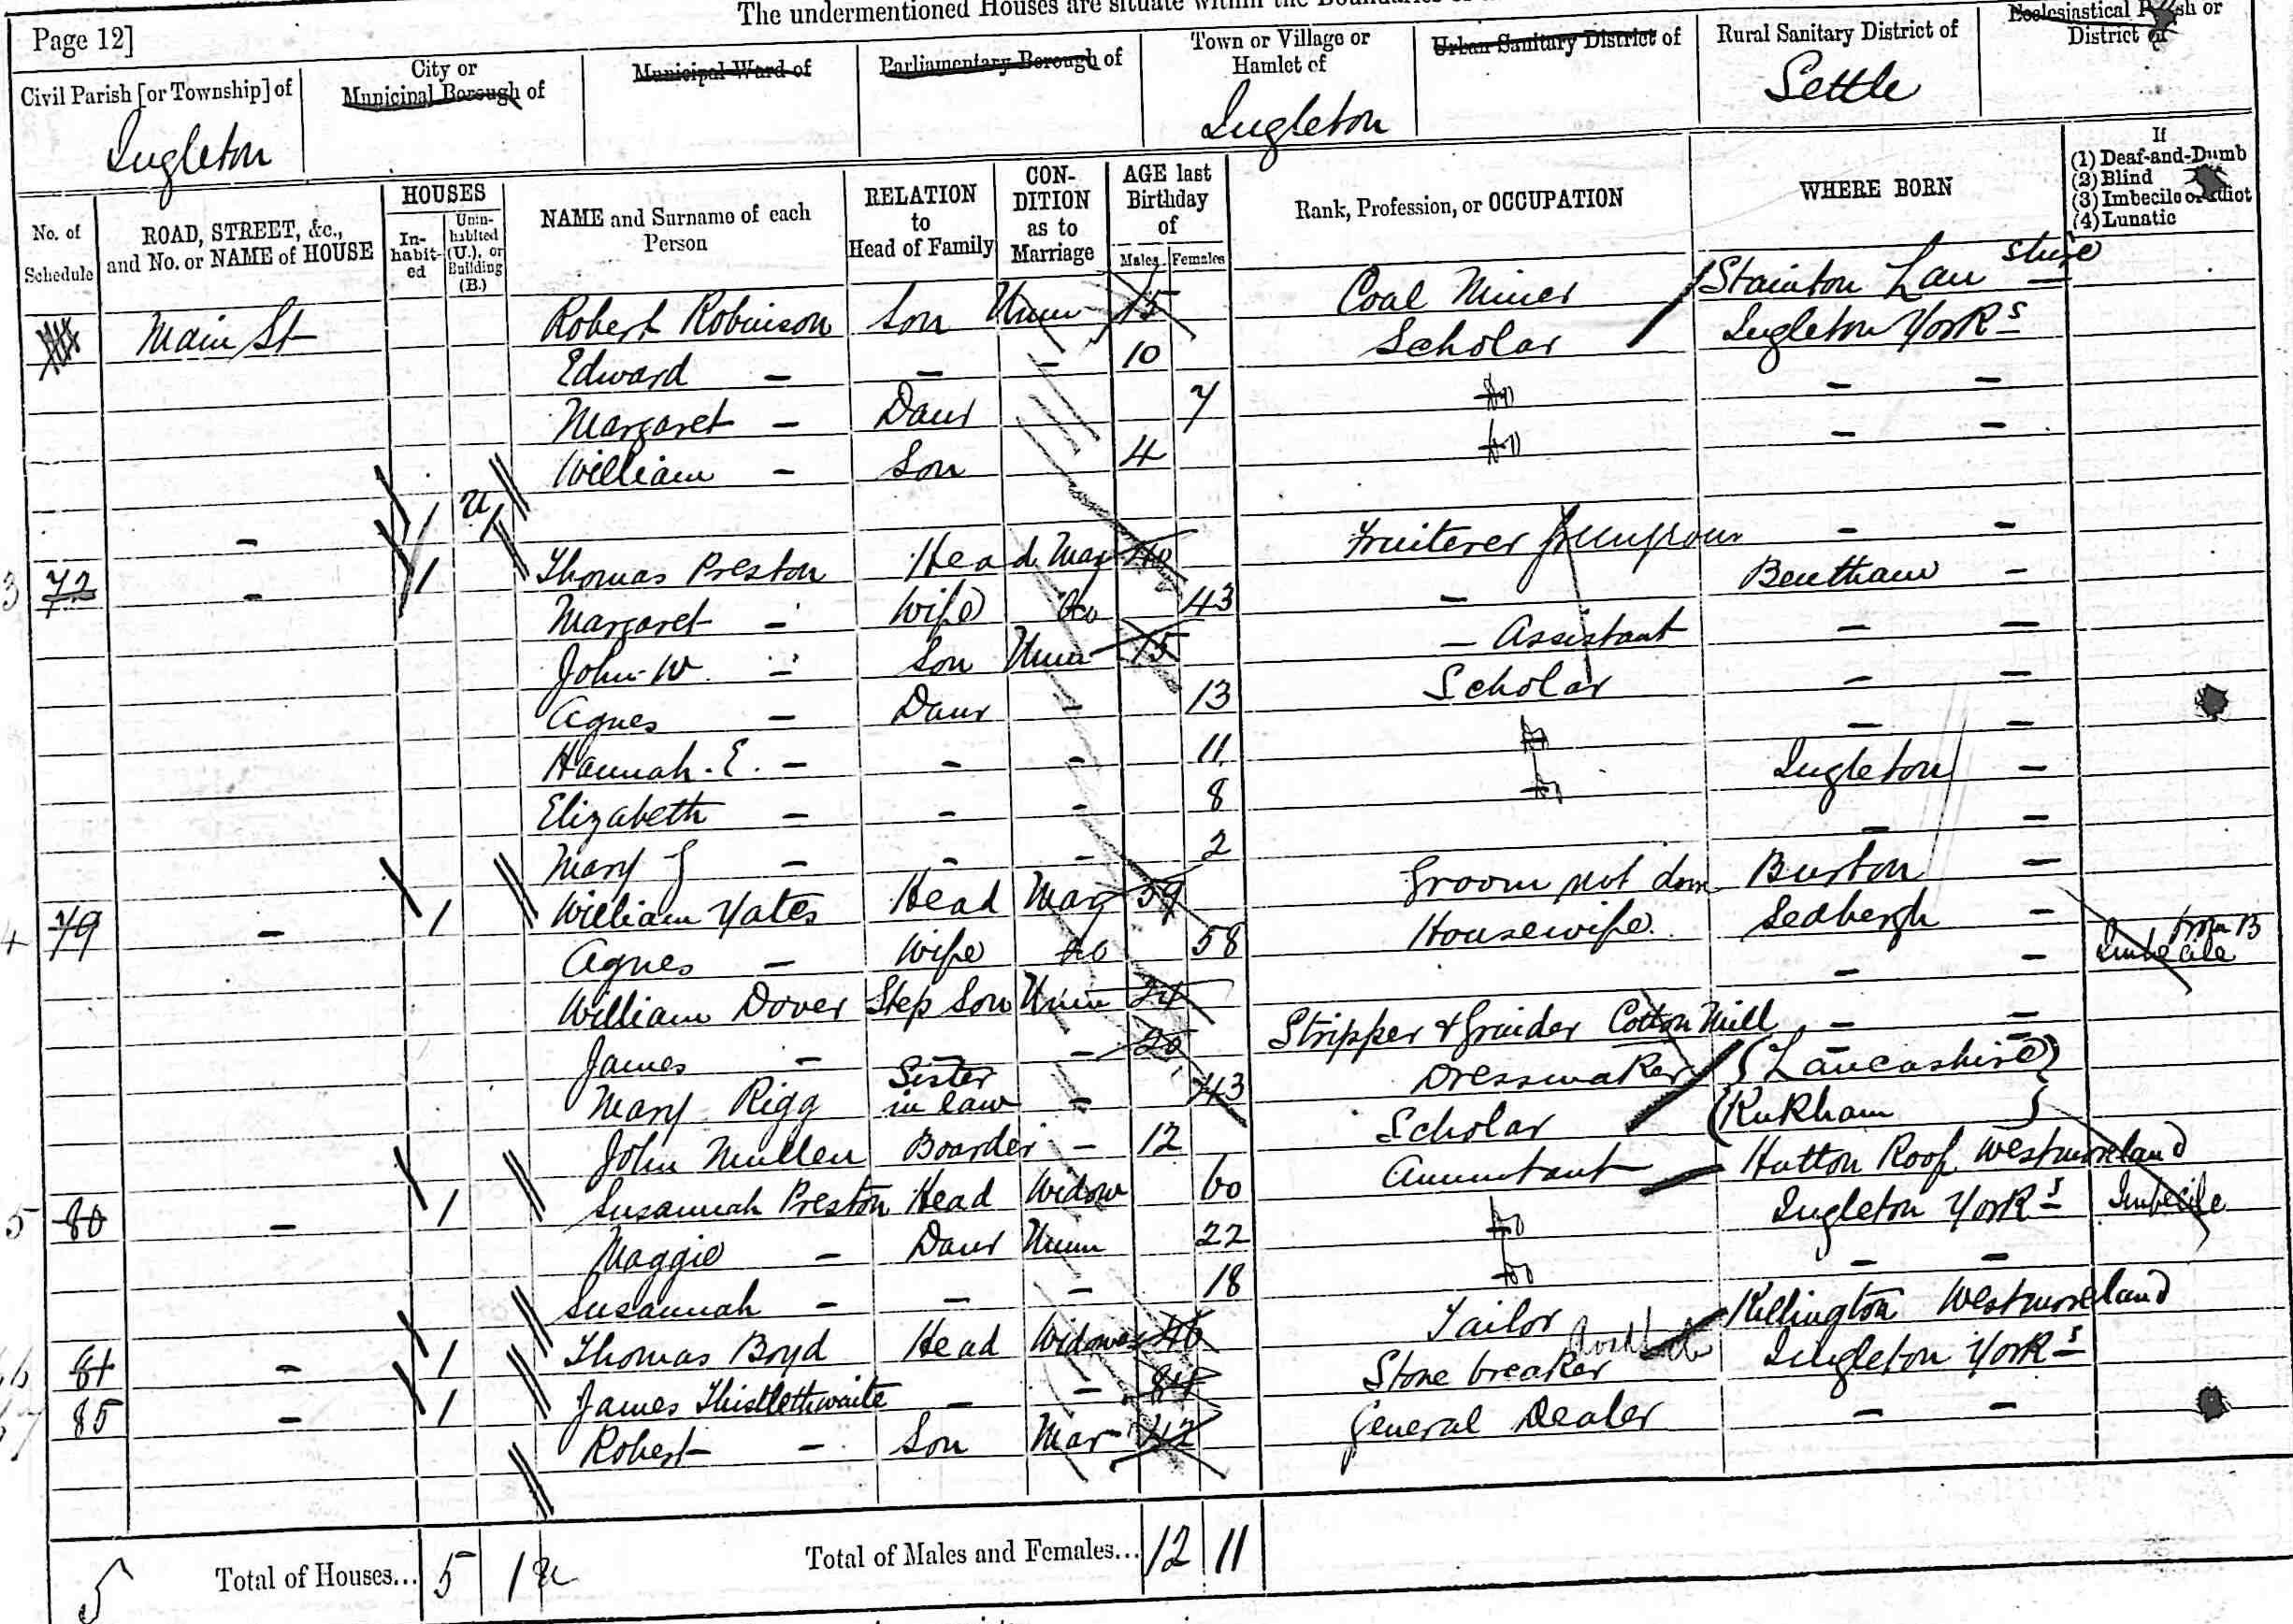 The undermentioned Houses are situate within the Boundaries of
Page 12]
Civil Parish [or Township] of
Ingleton
City or
Municipal Borough of
Municipal Ward of
Parliamentary Borough of
Town or Village or
Hamlet of
Ingleton
Urban Sanitary District of
Rural Sanitary District of
Settle
Ecclesiastical Parish or
District of
No. of
Schedule
ROAD, STREET, &c.,
and No. or NAME of HOUSE
HOUSES
In-
habit-
ed
Unin-
habited
(U.), or
Building
(B.)
NAME and Surname of each
Person
RELATION
to
Head of Family
CON-
DITION
as to
Marriage
AGE last
Birthday
of
Males
Females
Rank, Profession, or OCCUPATION
WHERE BORN
If
(1) Deaf-and-Dumb
(2) Blind
(3) Imbecile or Idiot
(4) Lunatic
Main St Robert Robinson Son Unm 15 Coal Miner Stainton
Edward — — — 10 Scholar Ingleton Yorks
Margaret — Daur 7 do — —
William — Son 4 do — —
— 1 U
72 — 1 Thomas Preston Head Mar 40 Fruiterer — —
Margaret — Wife do 43 — Bentham —
John W — Son Unm 15 — Assistant — —
Agnes — Daur — 13 Scholar — —
Hannah. E. — — — 11 do — —
Elizabeth — — — 8 do Ingleton —
Mary — — — 2 — —
79 — 1 William Yates Head Mar 59 Groom not dom Burton —
Agnes — Wife do 58 Housewife Sedbergh —
William Dover Step Son Unm 24 — — Imbecile from B
James — — — 20 Stripper & Grinder Cotton Mill — —
Mary Rigg Sister in law — 43 Dressmaker — —
John Mullen Boarder — 12 Scholar (Lancashire) (Kirkham)
80 — 1 Susannah Preston Head Widow 60 Annuitant Hutton Roof Westmoreland
Maggie — Daur Unm 22 do Ingleton Yorks Imbecile
Susannah — — — 18 do — —
84 — 1 Thomas Boyd Head Widower 46 Tailor Killington Westmoreland
85 — 1 James Thistlethwaite — — 84 Stone breaker Ingleton Yorks
Robert — Son Mar 42 General Dealer — —
5 Total of Houses... 5 1 u Total of Males and Females... 12 11